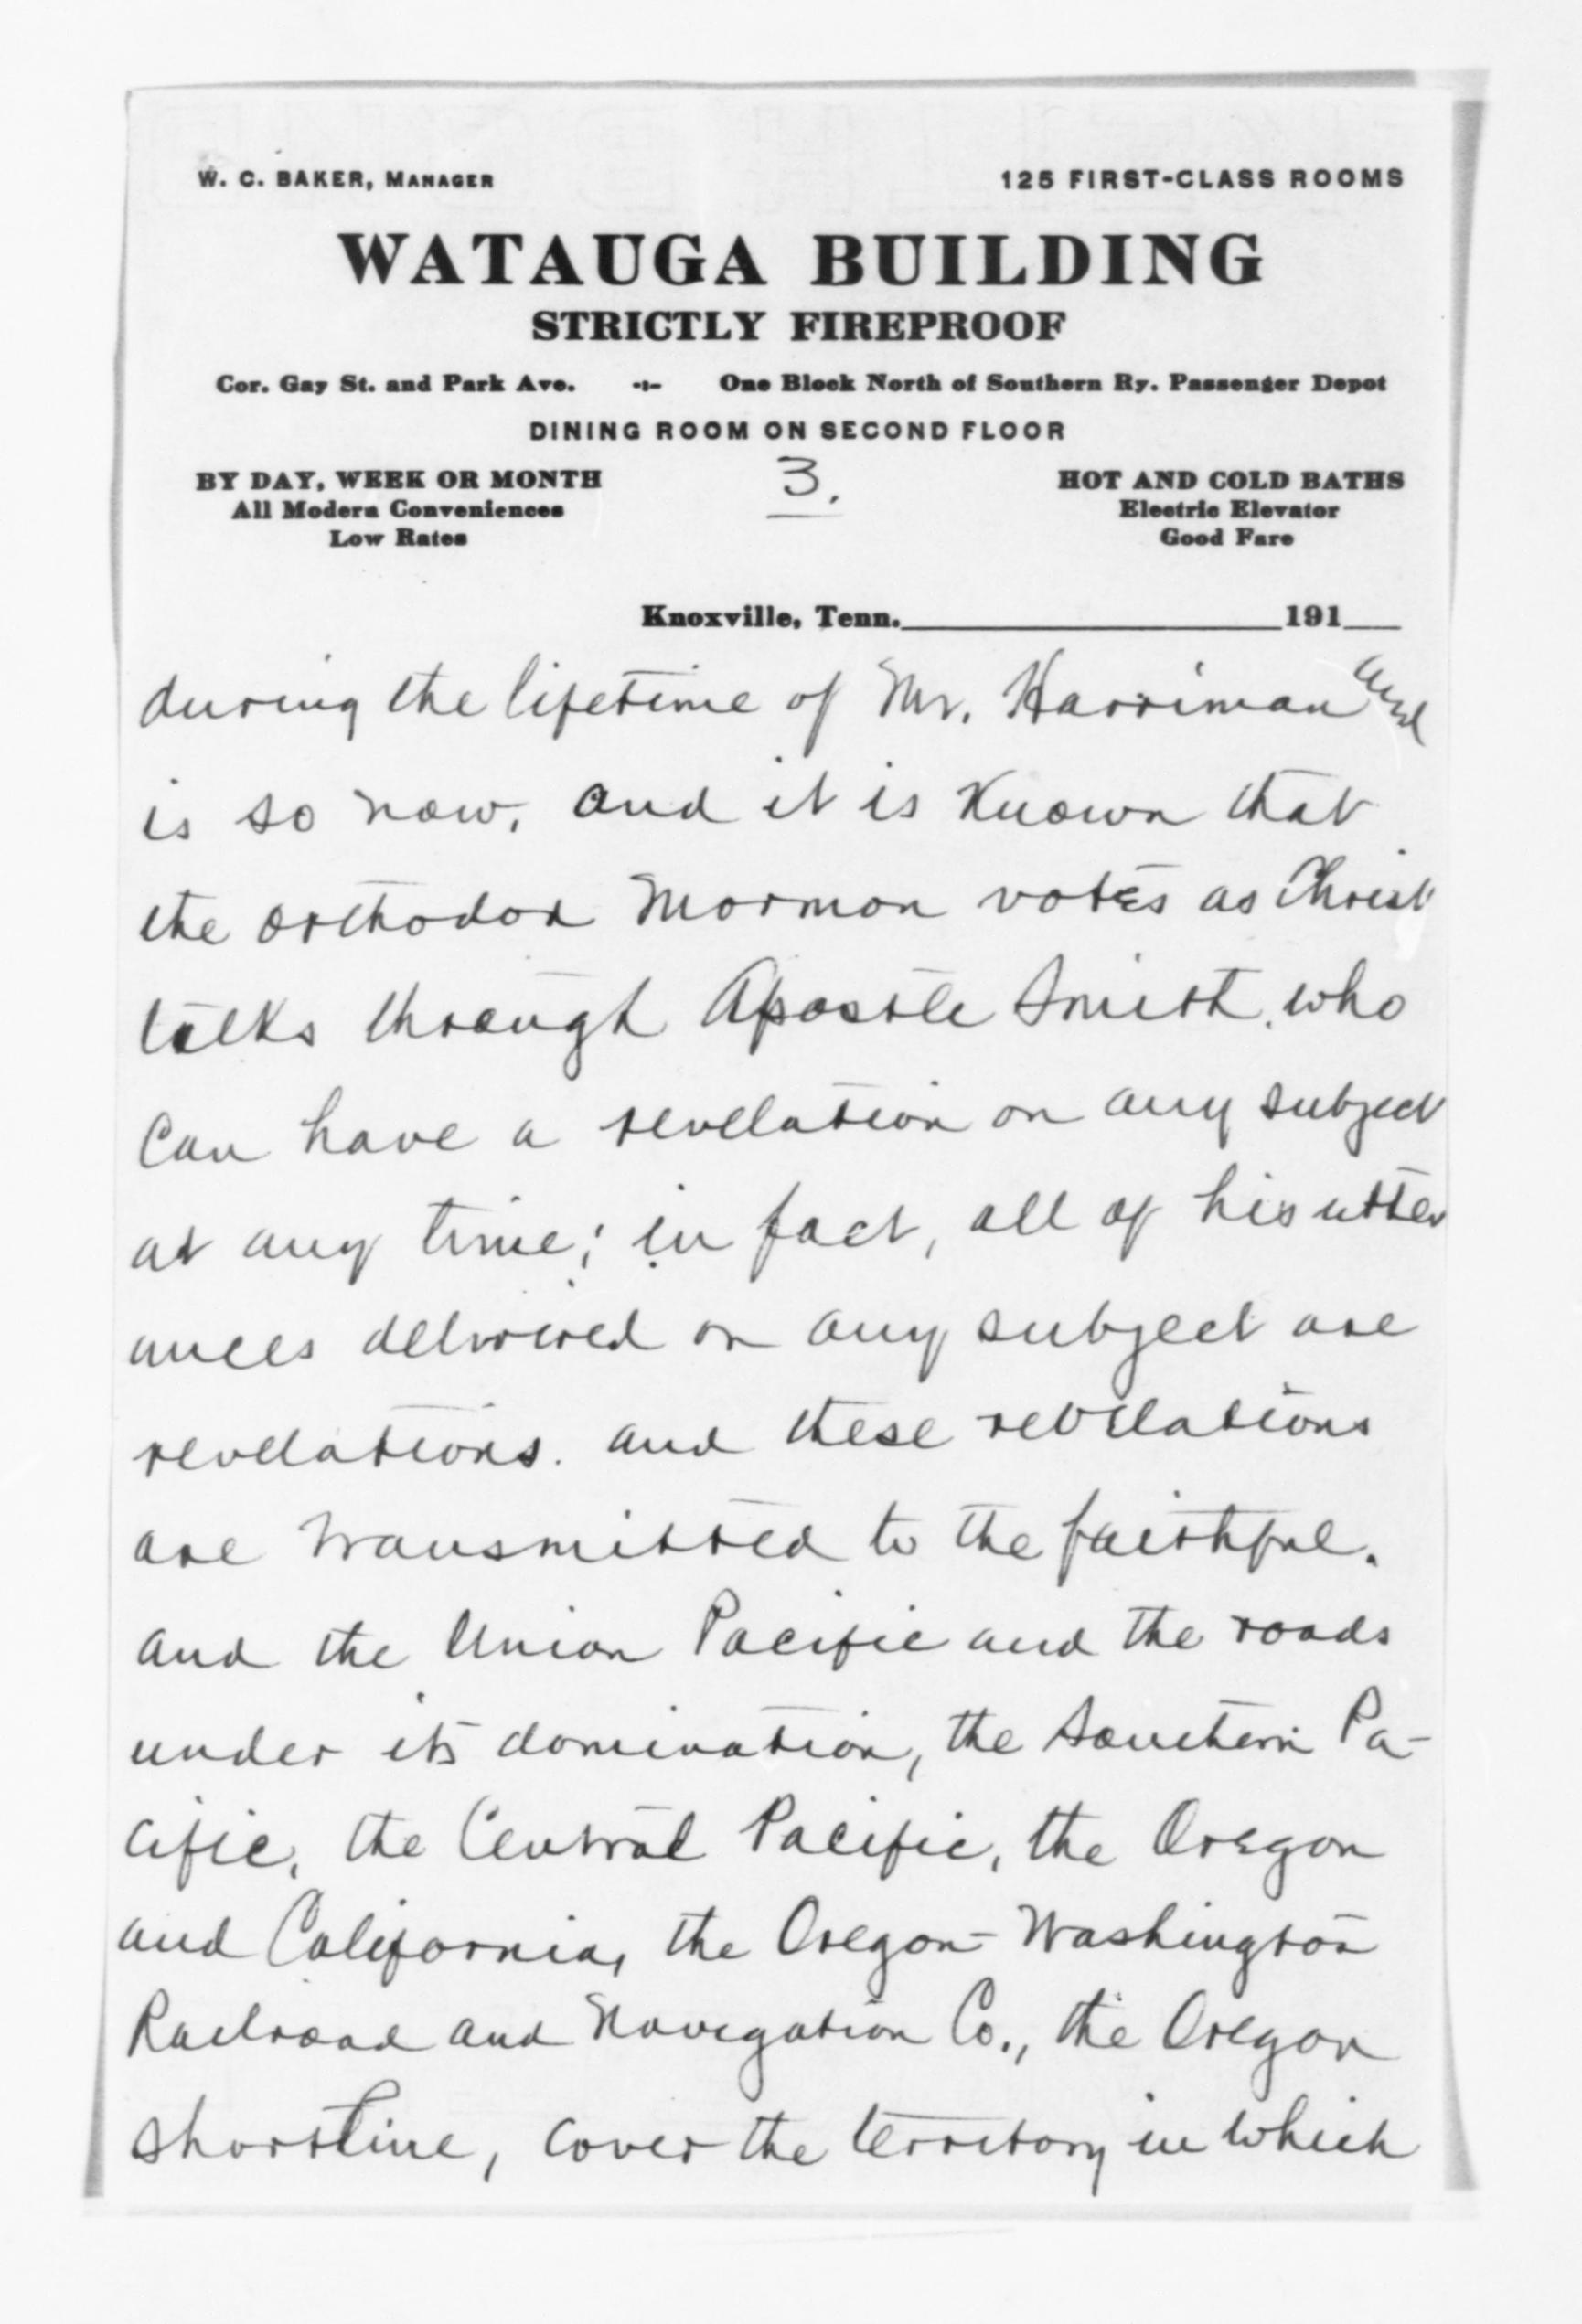 W. C. BAKER, MANAGER 125 FIRST-CLASS ROOMS
WATAUGA BUILDING
STRICTLY FIREPROOF
Cor. Gay St. and Park Ave. -:- One Block North of Southern Ry. Passenger Depot
DINING ROOM ON SECOND FLOOR
BY DAY, WEEK OR MONTH 3. HOT AND COLD BATHS
All Modern Conveniences Electric Elevator
Low Rates Good Fare
Knoxville, Tenn. 191
during the lifetime of Mr. Harriman and
is so now, and it is known that
the orthodox Mormon votes as Christ
talks through Apostle Smith, who
can have a revelation on any subject
at any time; in fact, all of his utter
ances delivered on any subject are
revelations. and these revelations
are transmitted to the faithful.
and the Union Pacific and the roads
under its domination, the Southern Pa-
cific, the Central Pacific, the Oregon
and California, the Oregon-Washington
Railroad and Navigation Co., the Oregon
Shortline, cover the territory in which